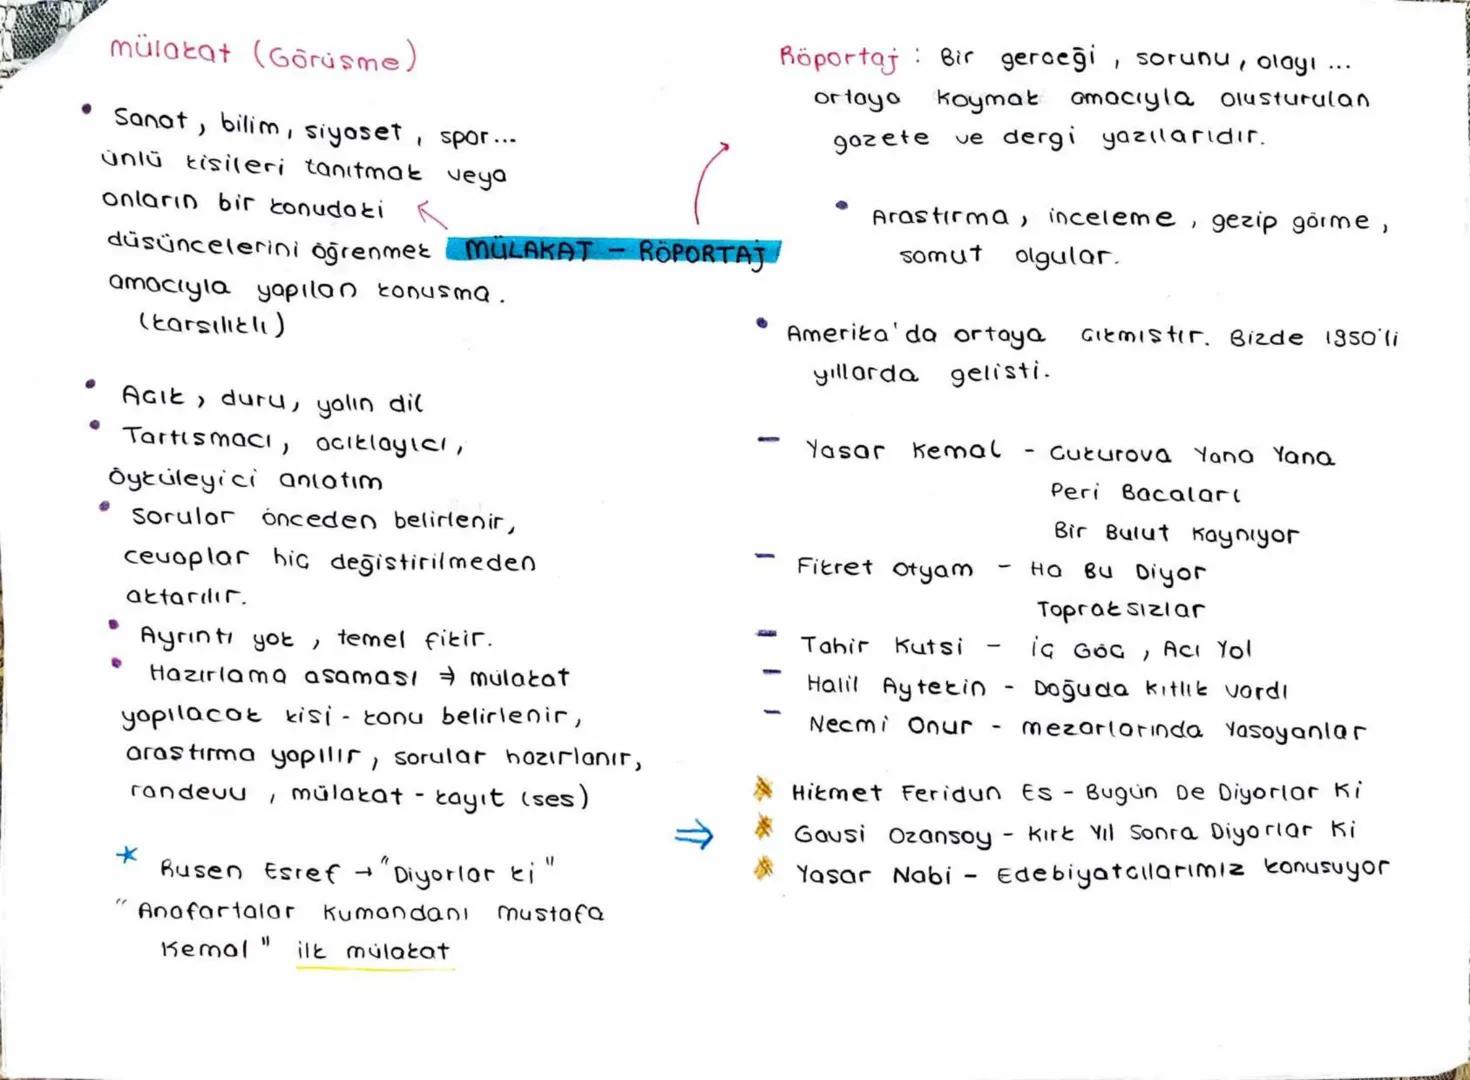 mülakat (Görüşme)
• Sanat, bilim, siyaset, spor...
ünlü kişileri tanıtmak veya
onların bir konudaki
düşüncelerini öğrenmek
amacıyla yapılan konuşma.
(karşılıklı)
• Açık, duru, yalın dil
• Tartışmacı, açıklayıcı,
öyküleyici anlatım
• Sorular önceden belirlenir,
cevaplar hiç değiştirilmeden
aktarılır.
• Ayrıntı yok, temel fikir.
• Hazırlama aşaması → mülakat
yapılacak kişi - konu belirlenir,
araştırma yapılır, sorular hazırlanır,
randevu, mülakat - kayıt (ses)
* Ruşen Eşref → "Diyorlar ki"
"Anafartalar Kumandanı Mustafa
Kemal" ilk mülakat
MÜLAKAT - RÖPORTAJ
Röportaj : Bir gerçeği, sorunu, olayı ...
ortaya koymak amacıyla oluşturulan
gazete ve dergi yazılarıdır.
• Araştırma, inceleme, gezip görme,
somut olgular.
• Amerika'da ortaya çıkmıştır. Bizde 1950'li
yıllarda gelişti.
- Yaşar Kemal - Çukurova Yana Yana
Peri Bacaları
Bir Bulut Kaynıyor
- Fikret Otyam - Ha Bu Diyor
Topraksızlar
- Tahir Kutsi - İç Göç, Acı Yol
- Halil Aytekin - Doğuda kıtlık vardı
- Necmi Onur - mezarlarında Yaşayanlar
⇒ * Hikmet Feridun Es - Bugün De Diyorlar Ki
* Gavsi Ozansoy - Kırk Yıl Sonra Diyorlar Ki
* Yaşar Nabi - Edebiyatçılarımız konuşuyor